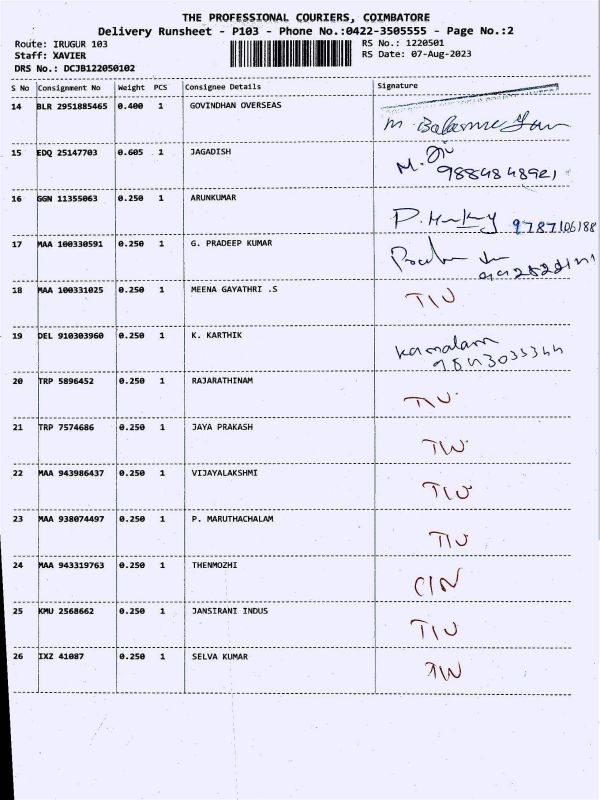 THE PROFESSIONAL COURIERS, COIMBATORE
Delivery Runsheet - P103 - Phone No.:0422-3505555 - Page No.:2
Route: IRUGUR 103 RS No.: 1220501
Staff: XAVIER RS Date: 07-Aug-2023
DRS No.: DCJB122050102
S No Consignment No Weight PCS Consignee Details Signature
14 BLR 2951885465 0.400 1 GOVINDHAN OVERSEAS
15 EDQ 25147703 0.605 1 JAGADISH M.
16 GGN 11355063 0.250 1 ARUNKUMAR 9787106188
17 MAA 100330591 0.250 1 G. PRADEEP KUMAR
18 MAA 100331025 0.250 1 MEENA GAYATHRI .S
19 DEL 910303960 0.250 1 K. KARTHIK Kamalam
20 TRP 5896452 0.250 1 RAJARATHINAM
21 TRP 7574686 0.250 1 JAYA PRAKASH
22 MAA 943986437 0.250 1 VIJAYALAKSHMI
23 MAA 938074497 0.250 1 P. MARUTHACHALAM
24 MAA 943319763 0.250 1 THENMOZHI
25 KMU 2568662 0.250 1 JANSIRANI INDUS
26 IXZ 41087 0.250 1 SELVA KUMAR